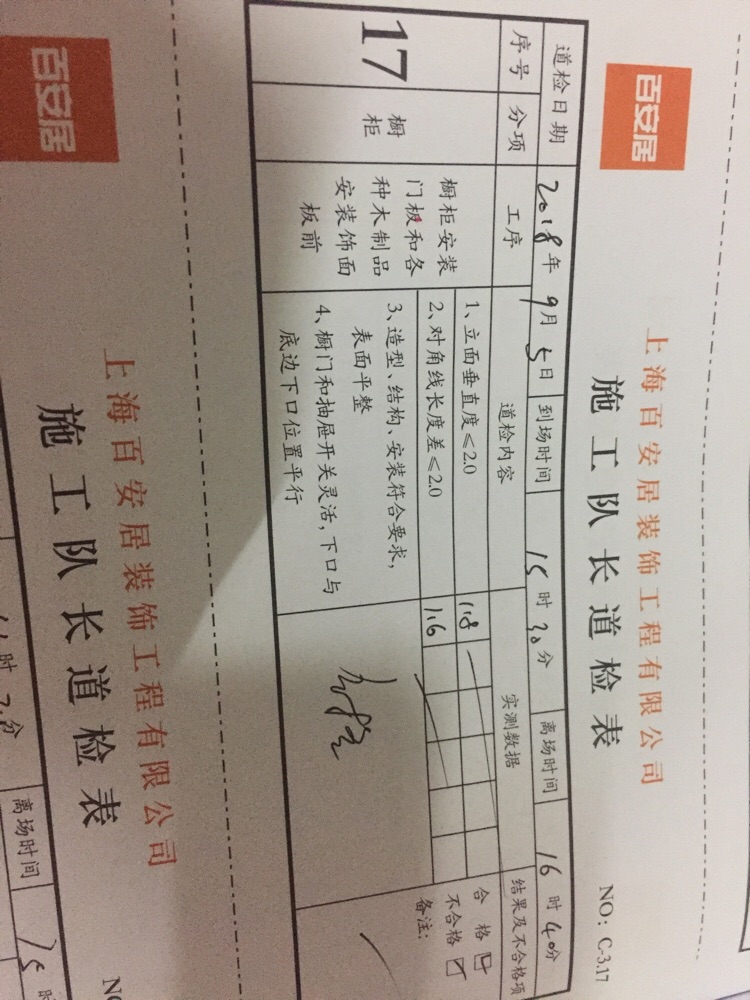 百安居
上海百安居装饰工程有限公司
施工队长道检表
NO: C-3.17
道检日期 2018年9月5日 到场时间 15时30分 离场时间 16时40分
序号 分项 工序 道检内容 实测数据 结果及不合格项
17
橱柜
橱柜安装
门板和各
种木制品
安装饰面
板前
1、立面垂直度≤2.0
1.8
2、对角线长度差≤2.0
1.6
3、造型、结构、安装符合要求,
表面平整
4、橱门和抽屉开关灵活,下口与
底边下口位置平行
合格
不合格
备注:
百安居
上海百安居装饰工程有限公司
施工队长道检表
离场时间